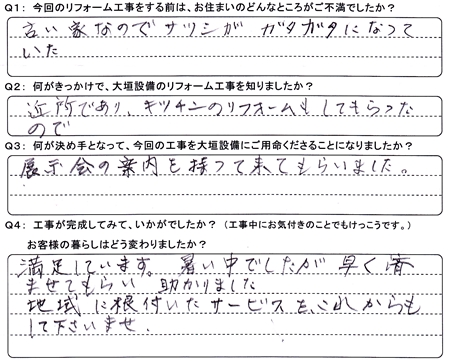 Q1: 今回のリフォーム工事をする前は、お住まいのどんなところがご不満でしたか？
古い家なのでサツシが ガタガタになって
いた
Q2: 何がきっかけで、大垣設備のリフォーム工事を知りましたか？
近所であり、キッチンのリフォームもしてもらった
ので
Q3: 何が決め手となって、今回の工事を大垣設備にご用命くださることになりましたか？
展示会の案内を持って来てもらいました。
Q4: 工事が完成してみて、いかがでしたか？（工事中にお気付きのことでもけっこうです。）
お客様の暮らしはどう変わりましたか？
満足しています。暑い中でしたが早く済
ませてもらい 助かりました
地域に根付いたサービスを、これからも
して下さいませ.